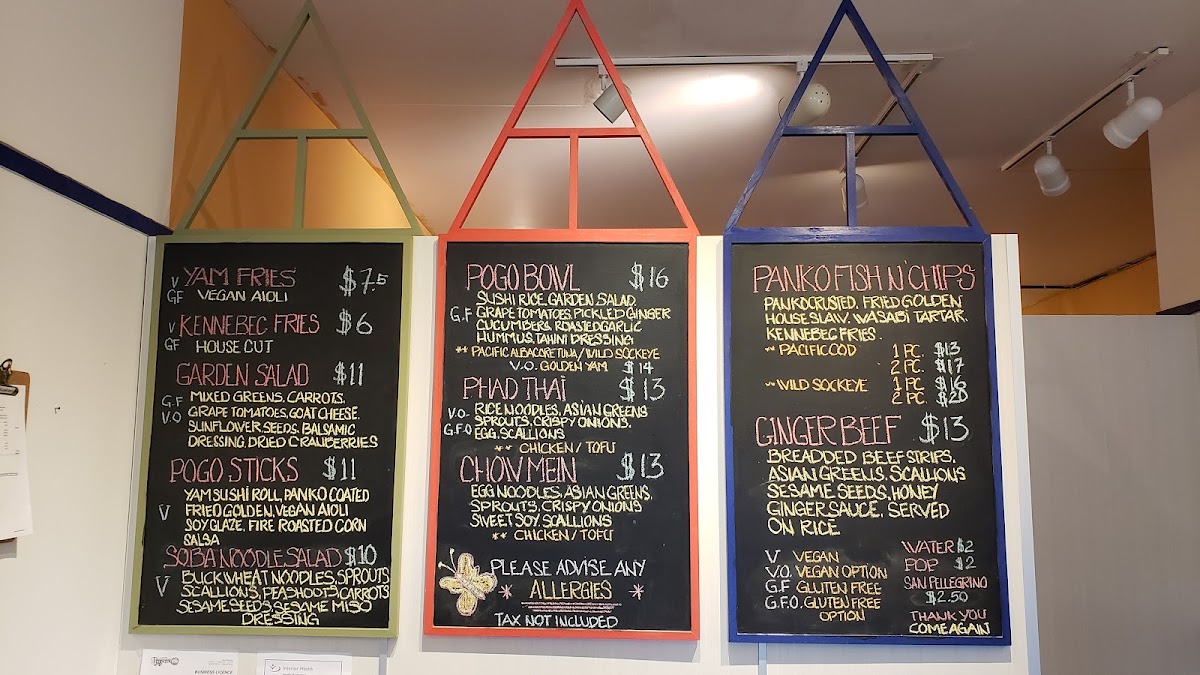 V YAM FRIES $7.5
GF VEGAN AIOLI
V KENNEBEC FRIES $6
GF HOUSE CUT
GARDEN SALAD $11
G.F MIXED GREENS, CARROTS,
V.O GRAPE TOMATOES, GOAT CHEESE,
SUNFLOWER SEEDS, BALSAMIC
DRESSING, DRIED CRANBERRIES
POGO STICKS $11
YAM SUSHI ROLL, PANKO COATED
V FRIED GOLDEN, VEGAN AIOLI
SOY GLAZE, FIRE ROASTED CORN
SALSA
SOBA NOODLE SALAD $10
V BUCKWHEAT NOODLES, SPROUTS
SCALLIONS, PEASHOOTS, CARROTS
SESAME SEEDS, SESAME MISO
DRESSING
POGO BOWL $16
SUSHI RICE, GARDEN SALAD,
G.F GRAPE TOMATOES, PICKLED GINGER
CUCUMBERS, ROASTED GARLIC
HUMMUS, TAHINI DRESSING
** PACIFIC ALBACORE TUNA / WILD SOCKEYE
V.O. GOLDEN YAM $14
PHAD THAI $13
V.O. RICE NOODLES, ASIAN GREENS
G.F.O SPROUTS, CRISPY ONIONS,
EGG, SCALLIONS
** CHICKEN / TOFU
CHOW MEIN $13
EGG NOODLES, ASIAN GREENS,
SPROUTS, CRISPY ONIONS
SWEET SOY, SCALLIONS
** CHICKEN / TOFU
PLEASE ADVISE ANY
* ALLERGIES *
TAX NOT INCLUDED
PANKO FISH N' CHIPS
PANKO CRUSTED, FRIED GOLDEN
HOUSE SLAW, WASABI TARTAR,
KENNEBEC FRIES.
~ PACIFIC COD 1 PC. $13
2 PC. $17
~ WILD SOCKEYE 1 PC. $16
2 PC. $20
GINGER BEEF $13
BREADED BEEF STRIPS,
ASIAN GREENS, SCALLIONS
SESAME SEEDS, HONEY
GINGER SAUCE, SERVED
ON RICE.
V VEGAN
V.O. VEGAN OPTION
G.F GLUTEN FREE
G.F.O. GLUTEN FREE
OPTION
WATER $2
POP $2
SAN PELLEGRINO
$2.50
THANK YOU
COME AGAIN
BUSINESS LICENCE
Interior Health